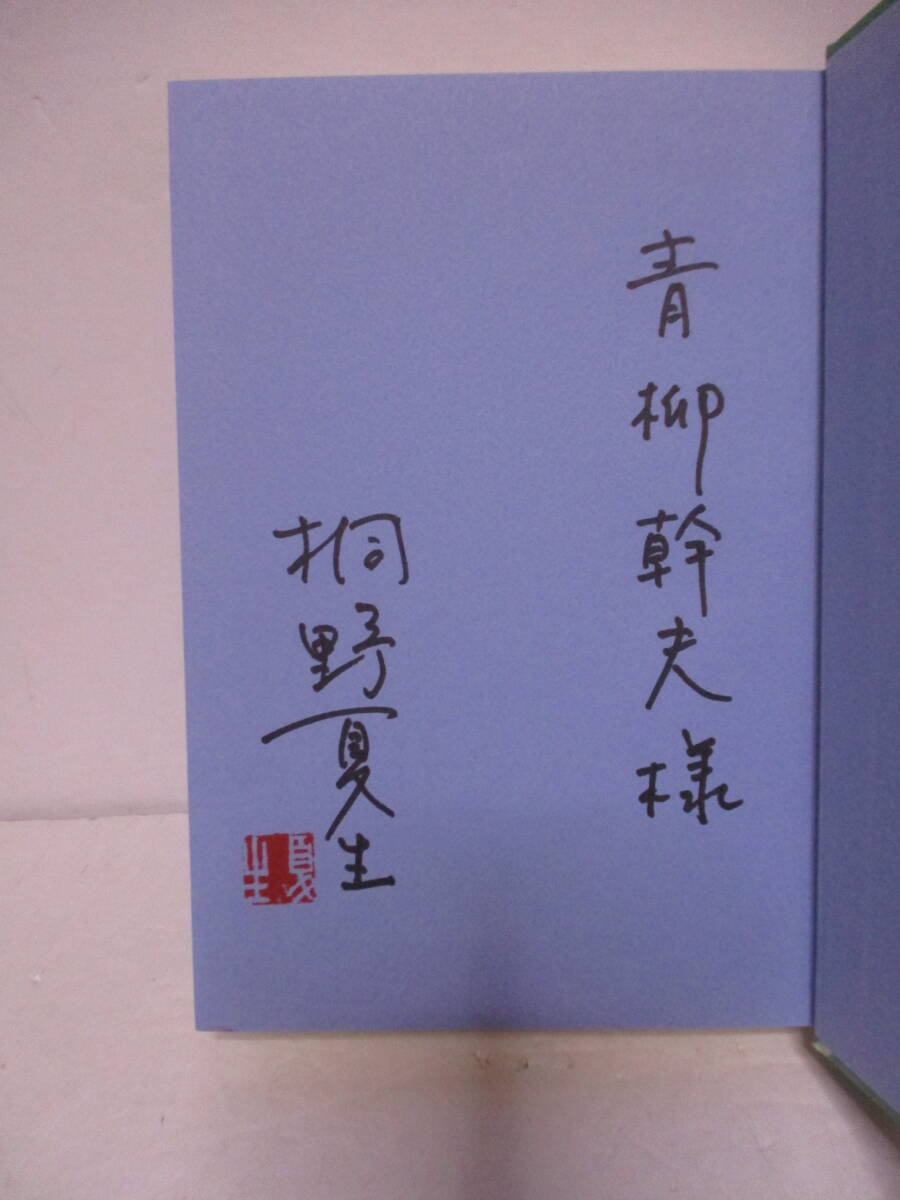 青柳幹夫様
桐野夏生
夏生